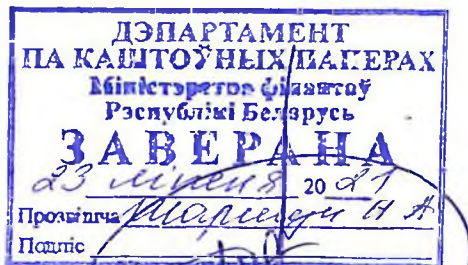 ДЭПАРТАМЕНТ
ПА КАШТОЎНЫХ ПАПЕРАХ
Міністэрства фінансаў
Рэспублікі Беларусь
ЗАВЕРАНА
23 ліпеня 20 21
Прозвішча
Подпіс